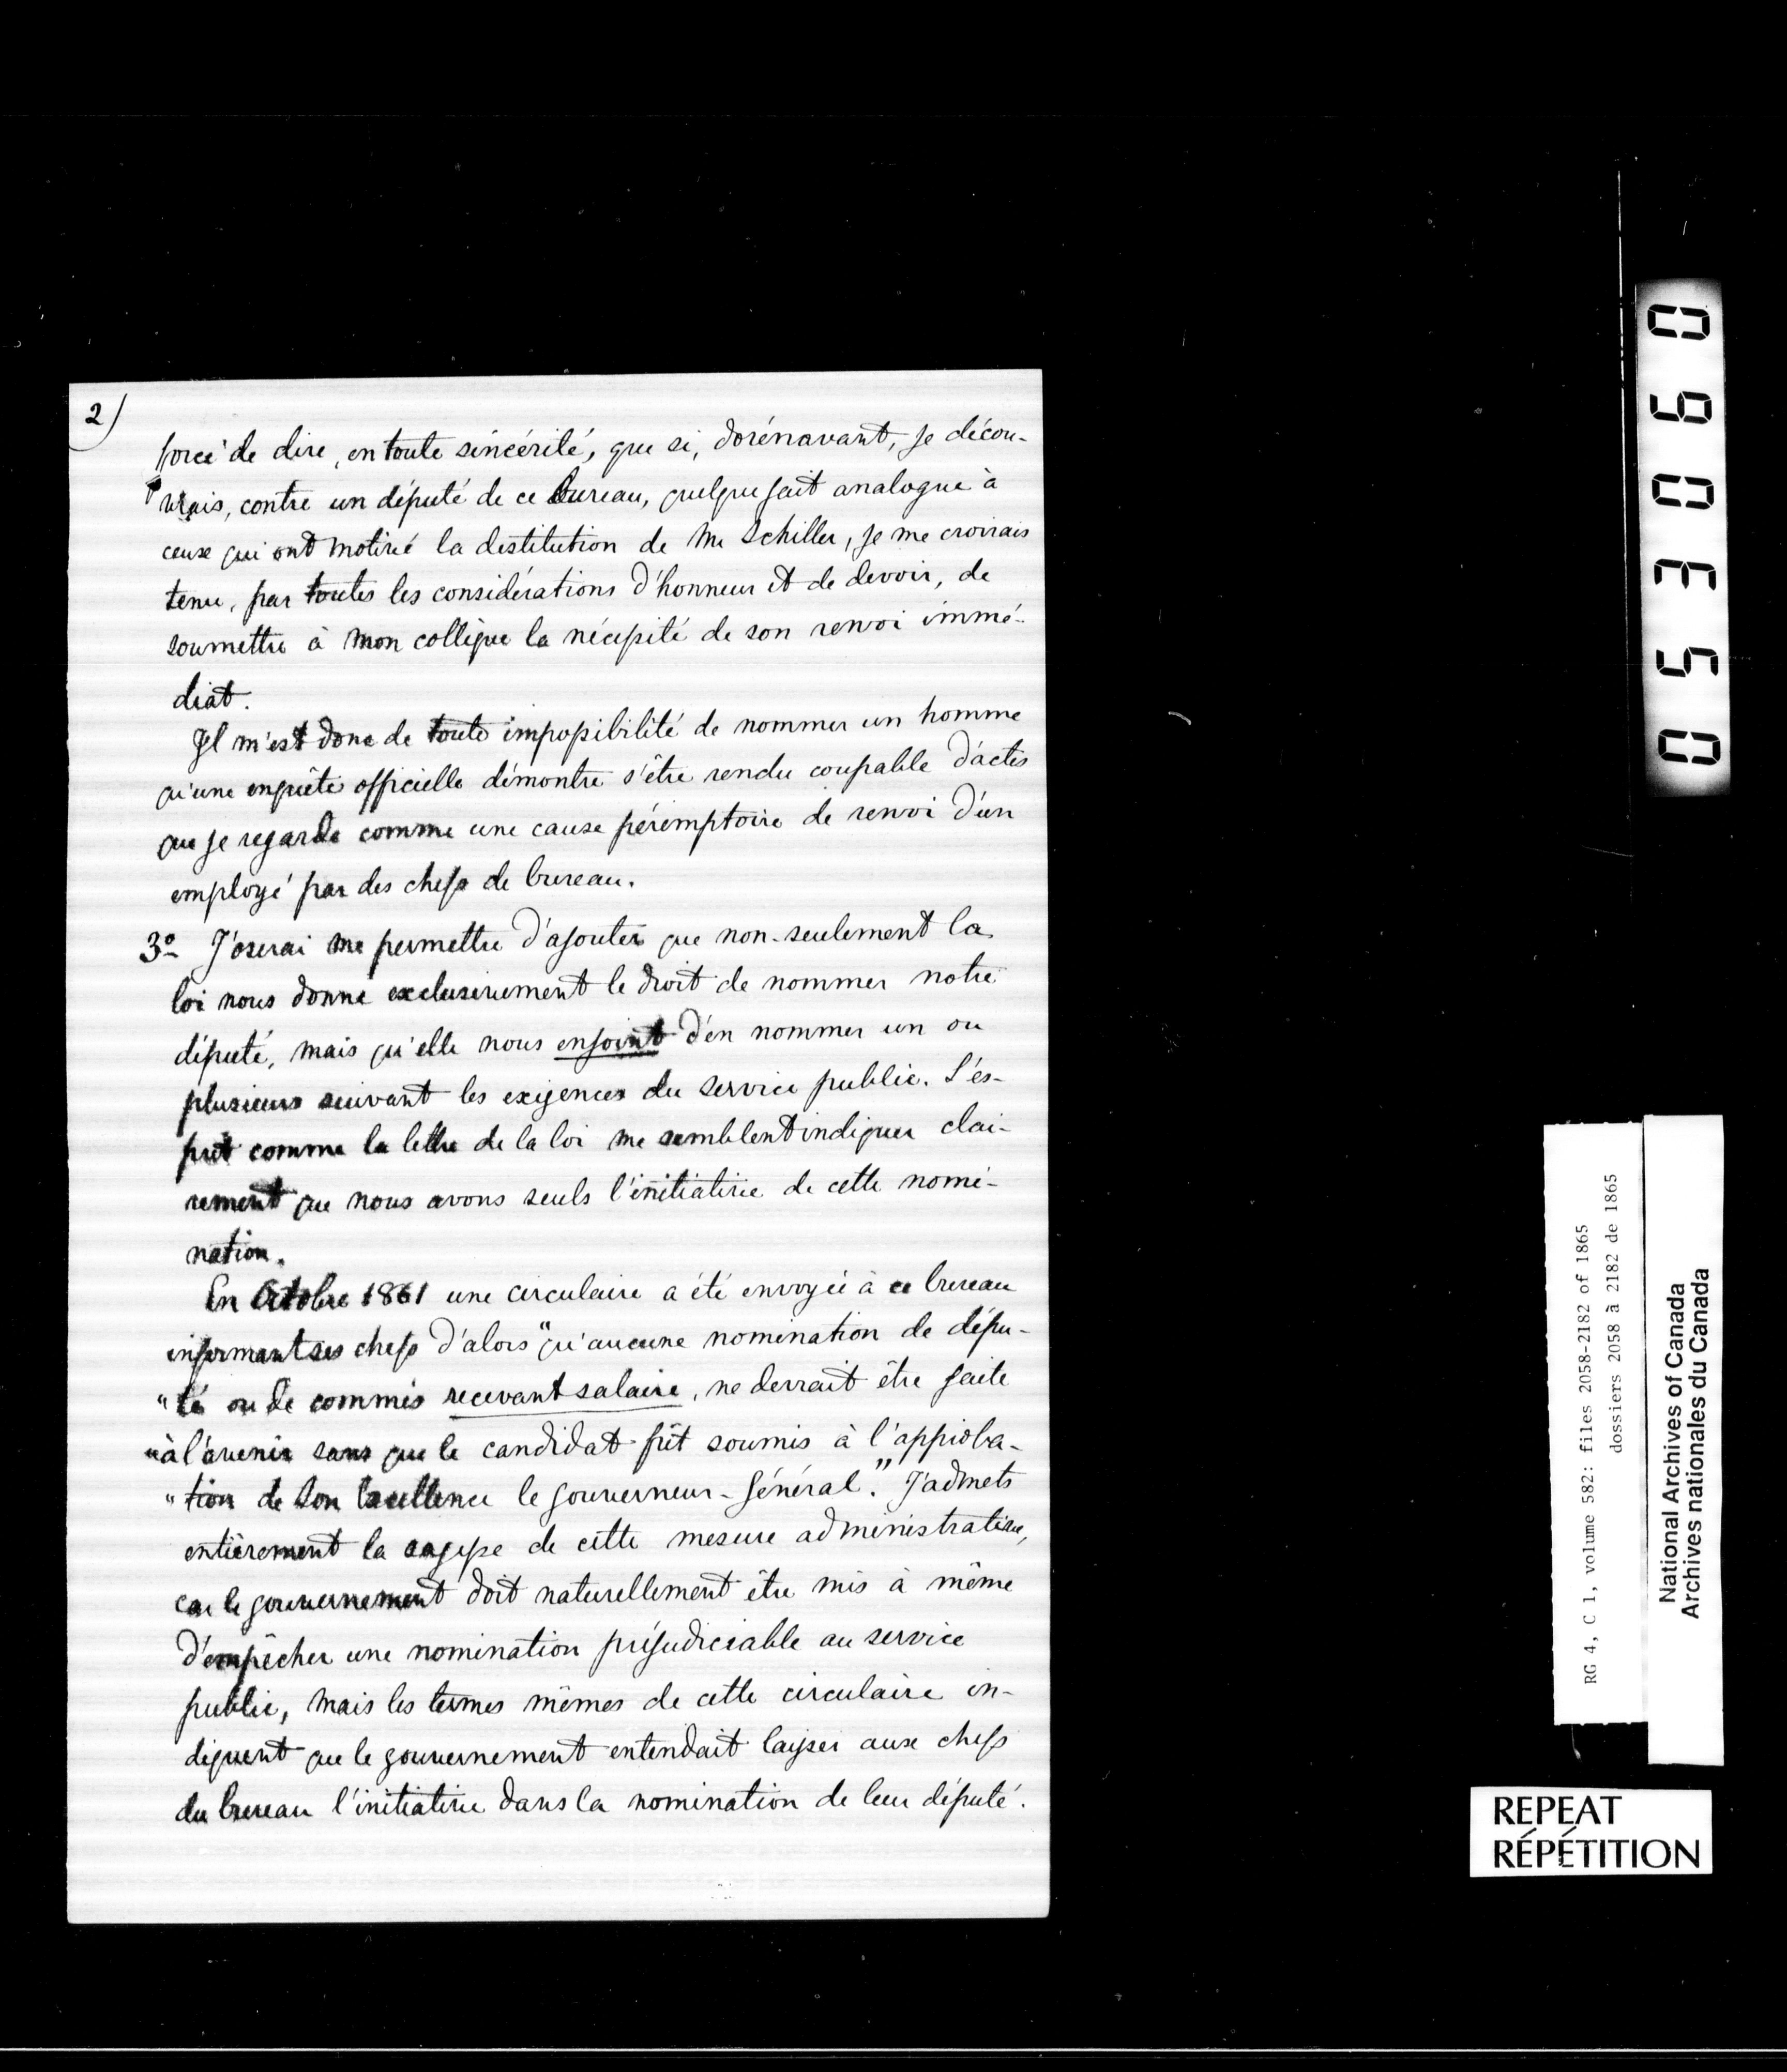 2/
forcé de dire, en toute sincérité, que si, dorénavant, je décou-
vrais, contre un député de ce bureau, quelque fait analogue à
ceux qui ont motivé la destitution de Mr Schiller, je me croirais
tenu, par toutes les considérations d'honneur et de devoir, de
soumettre à mon collègue la nécessité de son renvoi immé-
diat.
Il m'est donc de toute impossibilité de nommer un homme
qu'une enquête officielle démontre s'être rendu coupable d'actes
que je regarde comme une cause péremptoire de renvoi d'un
employé par des chefs de bureau.
3o J'oserai me permettre d'ajouter que non-seulement la
loi nous donne exclusivement le droit de nommer notre
député, mais qu'elle nous enjoint d'en nommer un ou
plusieurs suivant les exigences du service public. L'es-
prit comme la lettre de la loi me semblent indiquer clai-
rement que nous avons seuls l'initiative de cette nomi-
nation.
En Octobre 1861 une circulaire a été envoyée à ce bureau
informant ses chefs d'alors "qu'aucune nomination de dépu-
"té ou de commis recevant salaire, ne devrait être faite
"à l'avenir sans que le candidat fût soumis à l'approba-
"tion de Son Excellence le Gouverneur-Général." J'admets
entièrement la sagesse de cette mesure administrative,
car le gouvernement doit naturellement être mis à même
d'empêcher une nomination préjudiciable au service
public, mais les termes mêmes de cette circulaire in-
diquent que le gouvernement entendait laisser aux chefs
du bureau l'initiative dans la nomination de leur député.
0 5 3 0 6 0
RG 4, C 1, volume 582: files 2058-2182 of 1865
dossiers 2058 à 2182 de 1865
National Archives of Canada
Archives nationales du Canada
REPEAT
RÉPÉTITION